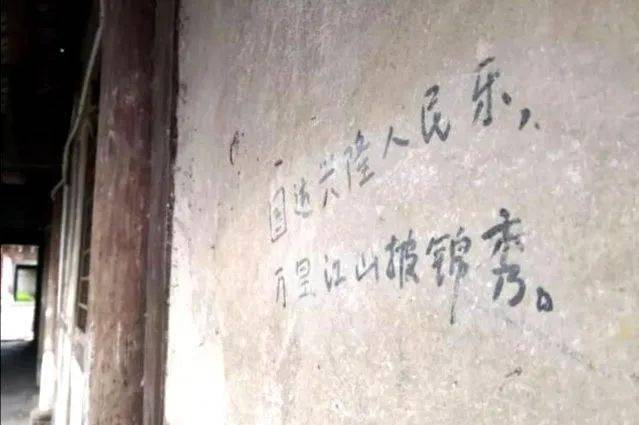 国运兴隆人民乐，
万里江山披锦秀。